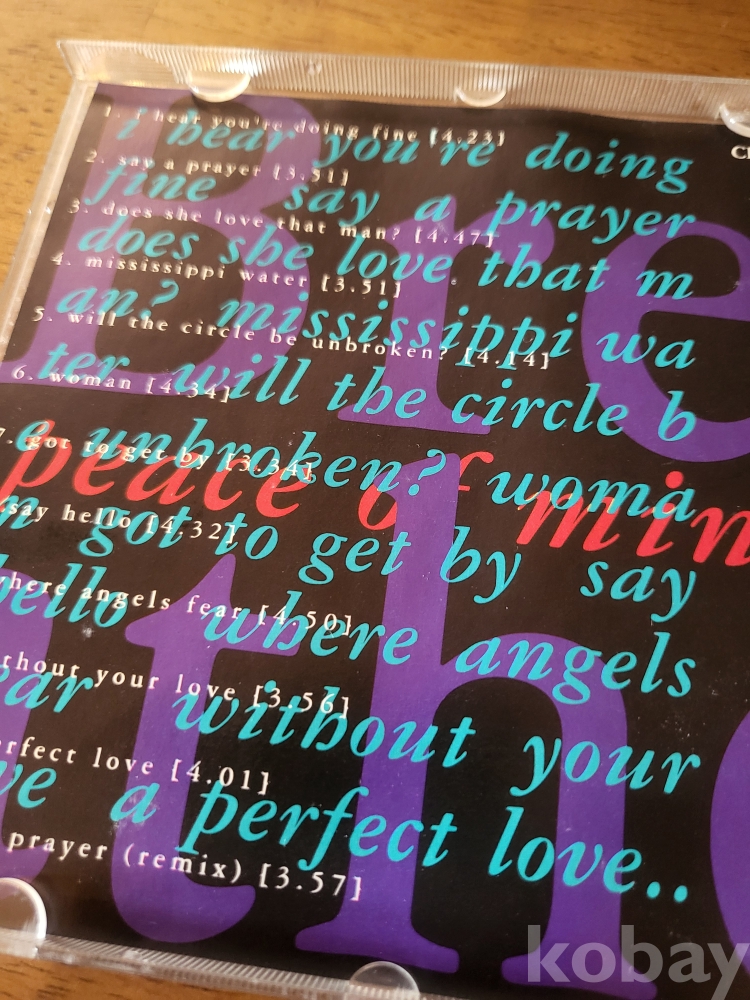 1. i hear you're doing fine [4.23]
i hear you're doing
2. say a prayer [3.51]
fine say a prayer
3. does she love that man? [4.47]
does she love that m
4. mississippi water [3.51]
an? mississippi wa
5. will the circle be unbroken? [4.14]
ter will the circle b
6. woman [4.34]
e unbroken? woma
7. got to get by [3.34]
peace of min
n got to get by say
say hello [4.32]
hello where angels
where angels fear [4.50]
ear without your
thout your love [3.56]
ve a perfect love..
erfect love [4.01]
prayer (remix) [3.57]
Bre
the
kobay